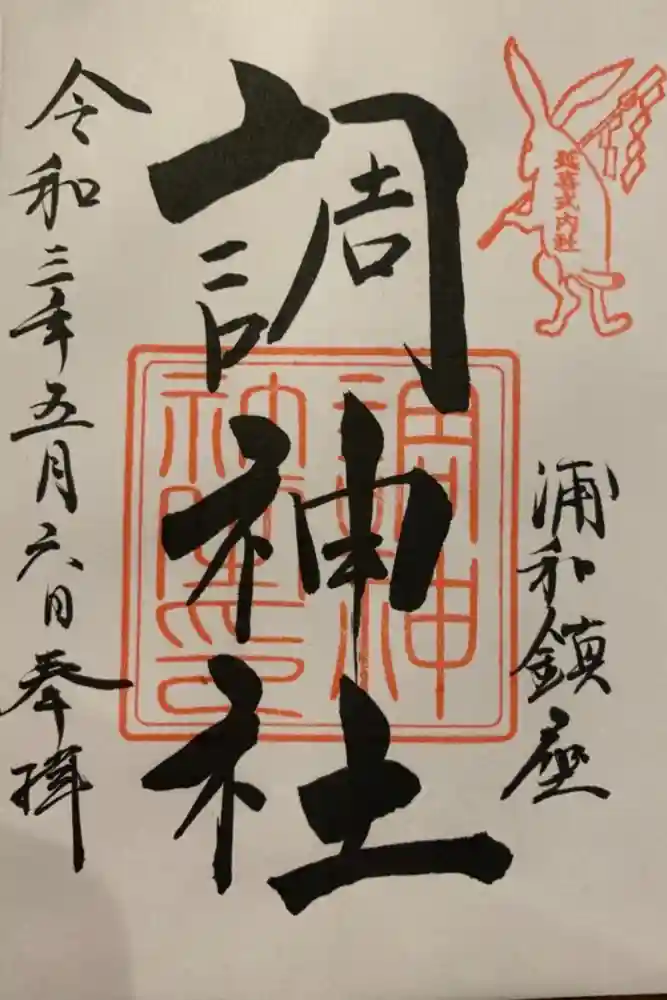 延喜式内社
浦和鎮座
調神社
調神
社璽之印
令和三年五月六日奉拝